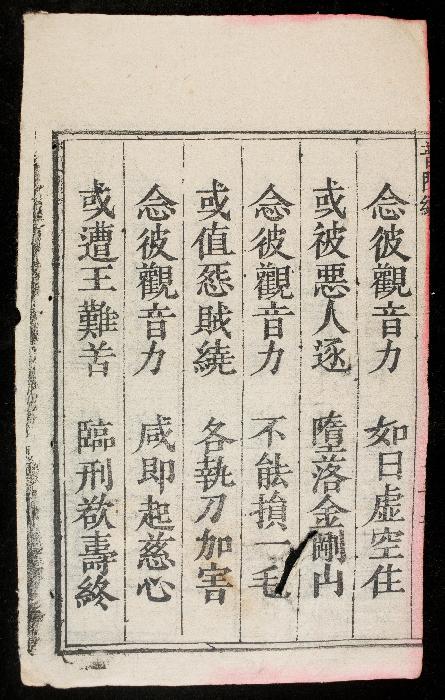 念彼觀音力 如日虛空住
或被悪人逐 墮落金剛山
念彼觀音力 不能損一毛
或值怨賊繞 各執刀加害
念彼觀音力 咸即起慈心
或遭王難苦 臨刑欲壽終